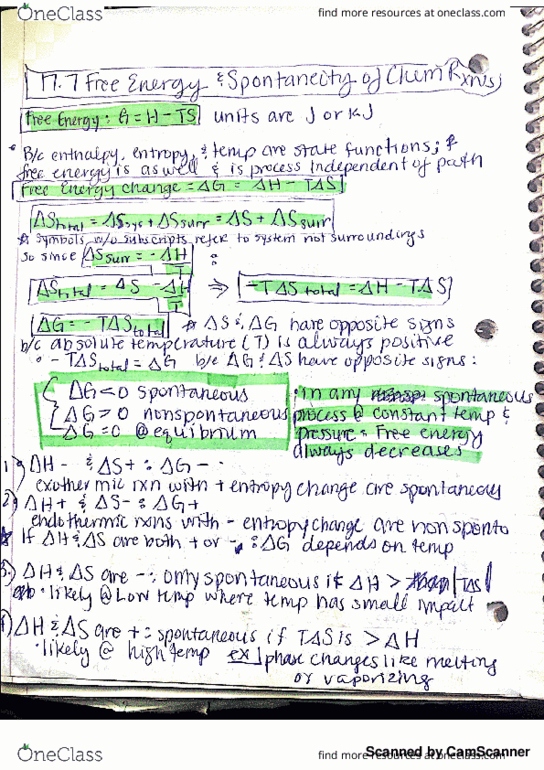 OneClass
find more resources at oneclass.com
17.7 Free Energy & Spontaneity of Chem Rxns
Free Energy: G = H - TS units are J or KJ
• B/c enthalpy, entropy, & temp are state functions; &
free energy is as well & is process independent of path
Free Energy change = ΔG = ΔH - TΔS
ΔStotal = ΔSsys + ΔSsurr = ΔS + ΔSsurr
* symbols w/o subscripts refer to system not surroundings
so since ΔSsurr = -ΔH/T :
ΔStotal = ΔS - ΔH/T ⇒ -TΔStotal = ΔH - TΔS
ΔG = -TΔStotal * ΔS & ΔG have opposite signs
b/c absolute temperature (T) is always positive
• -TΔStotal = ΔG b/c ΔG & ΔS have opposite signs:
ΔG < 0 spontaneous
ΔG > 0 nonspontaneous
ΔG = 0 @ equibrium
in any spontaneous
process @ constant temp &
pressure = Free energy
always decreases
1) ΔH - & ΔS + : ΔG - :
exothermic rxn with + entropy change are spontaneous
2) ΔH + & ΔS - : ΔG +
endothermic rxns with - entropy change are non sponto
* If ΔH & ΔS are both + or -, : ΔG depends on temp
3.) ΔH & ΔS are - : only spontaneous if ΔH > |TΔS|
• likely @ Low temp where temp has small impact
4) ΔH & ΔS are + : spontaneous if TΔS is > ΔH
• likely @ high temp ex] phase changes like melting
or vaporizing
OneClass
find more resources at oneclass.com
Scanned by CamScanner